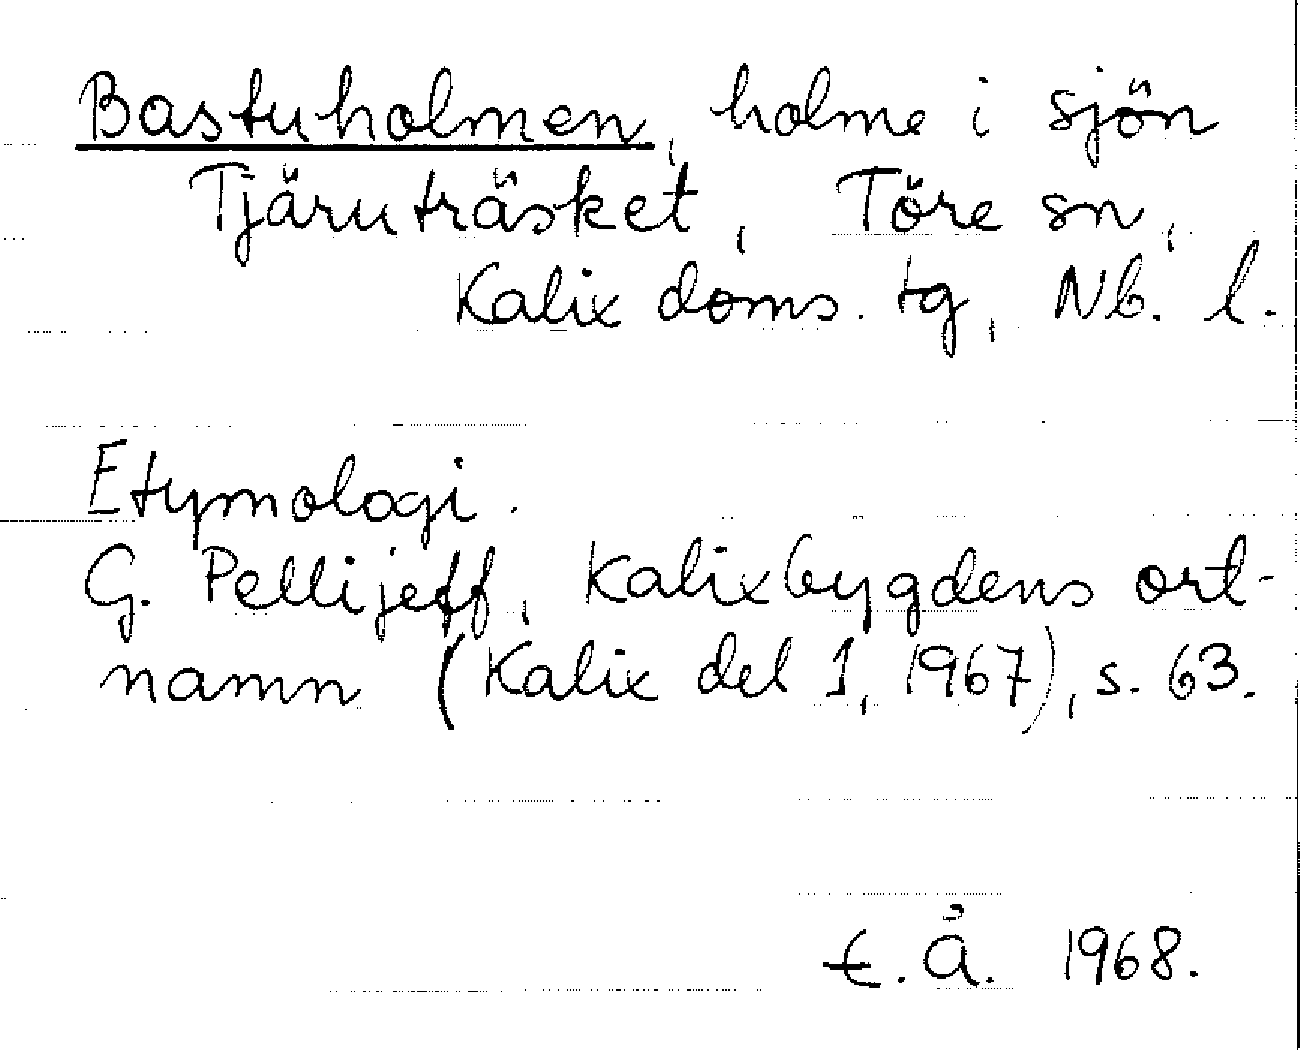 Bastuholmen, holme i sjön
Tjäruträsket, Töre sn,
Kalix doms. tg, Nb. l.
Etymologi.
G. Pellijeff, Kalixbygdens ort-
namn (Kalix del 1, 1967), s. 63.
E. Å. 1968.